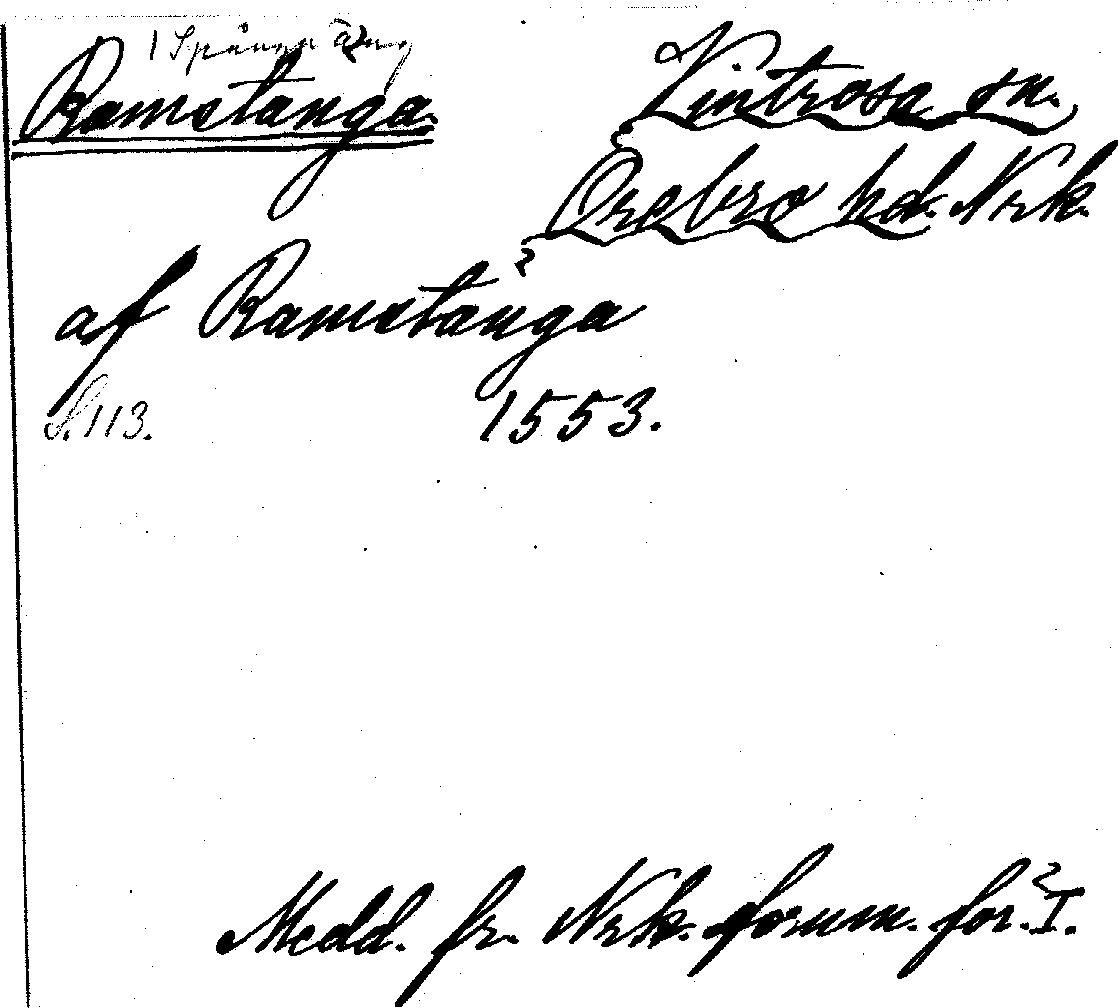 Ramstanga. Vintrosa sn.
Örebro hd. Nrk.
af Ramstånga
S. 113. 1553.
Medd. fr. Nrk. fornm. för. I.